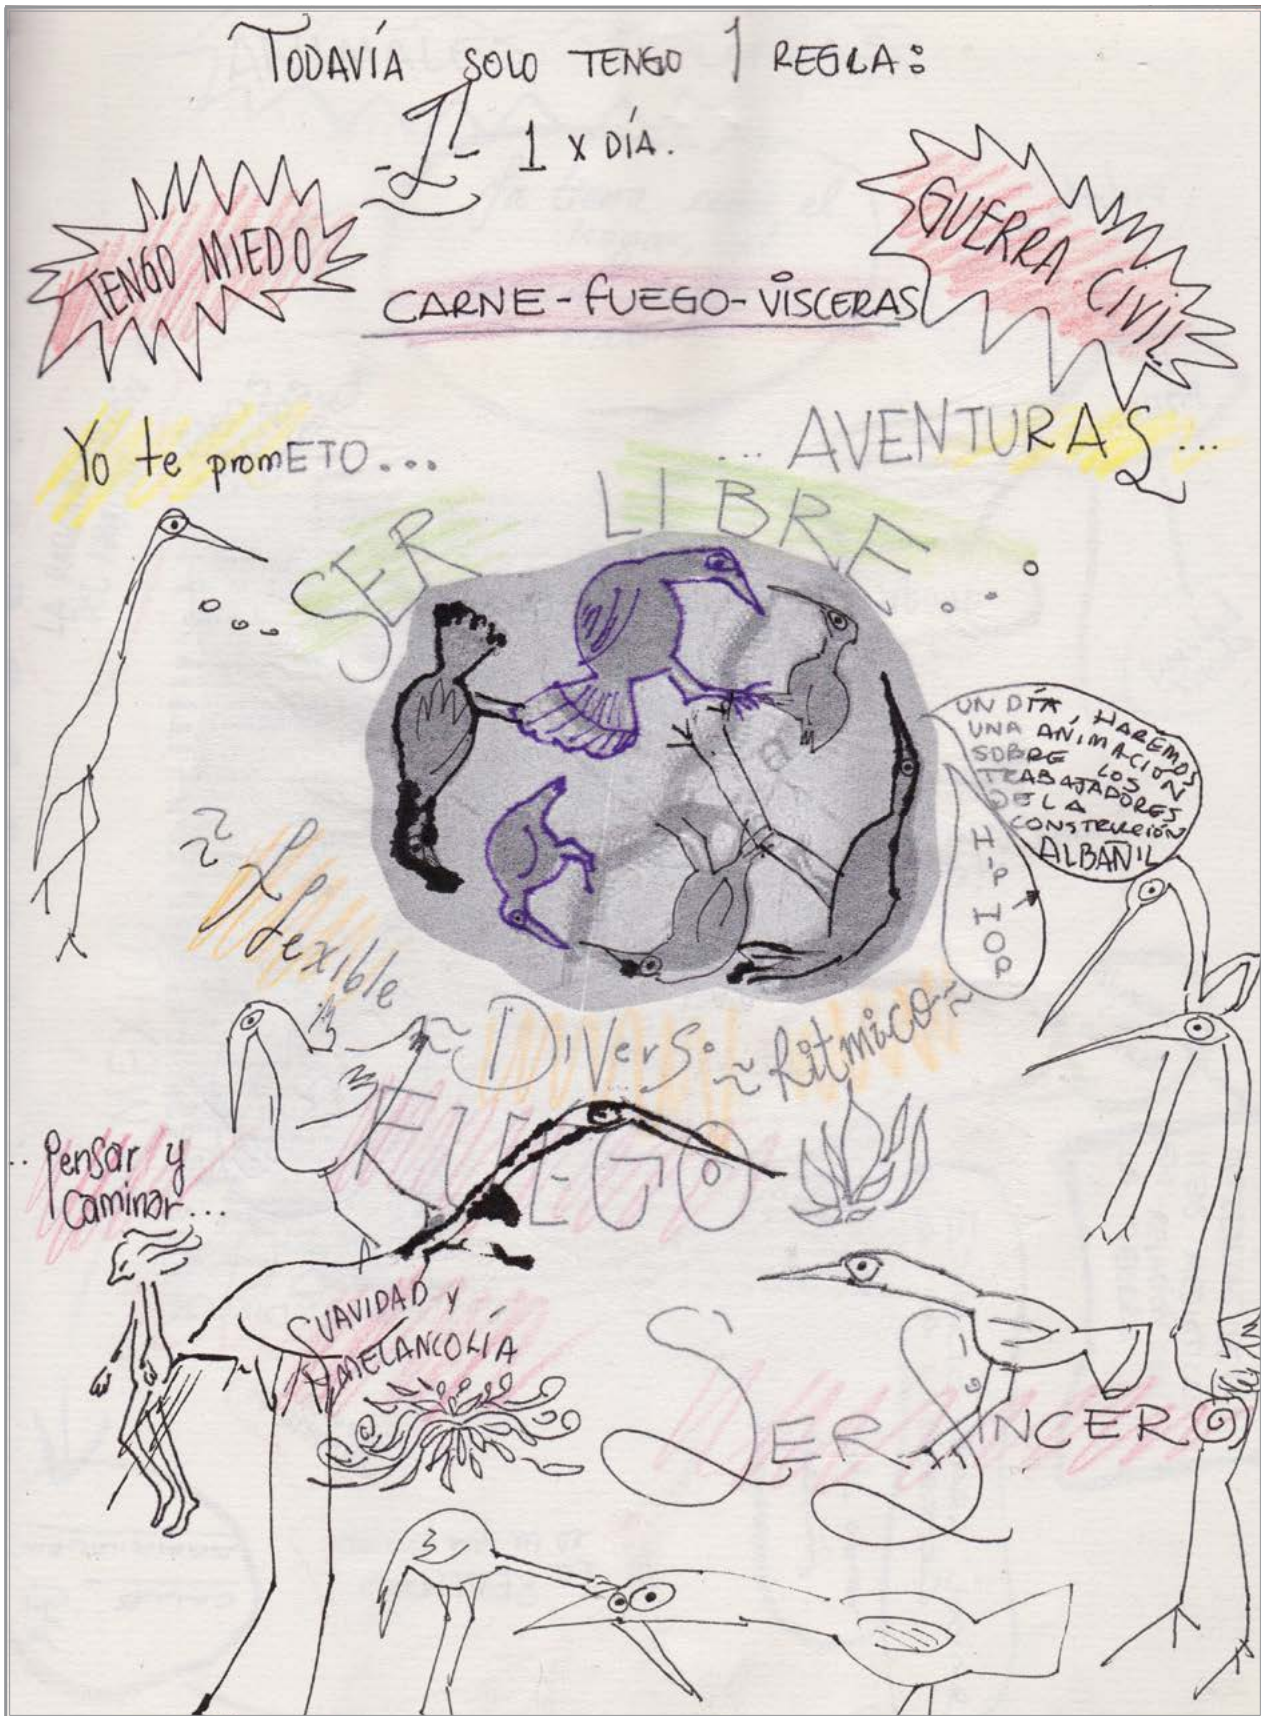 TODAVÍA SOLO TENGO 1 REGLA:
-1- 1 X DÍA.
TENGO MIEDO
GUERRA CIVIL
CARNE-FUEGO-VISCERAS
Yo te promETO...
... AVENTURAS...
... SER LIBRE...
UN DÍA, HAREMOS
UNA ANIMACIÓN
SOBRE LOS
TRABAJADORES
DE LA
CONSTRUCCIÓN
ALBAÑIL
HIP HOP
~ Flexible
~ Diverso ~ Ritmico ~
FUEGO
.. Pensar y
caminar...
SUAVIDAD Y
MELANCOLÍA
SER SINCERO